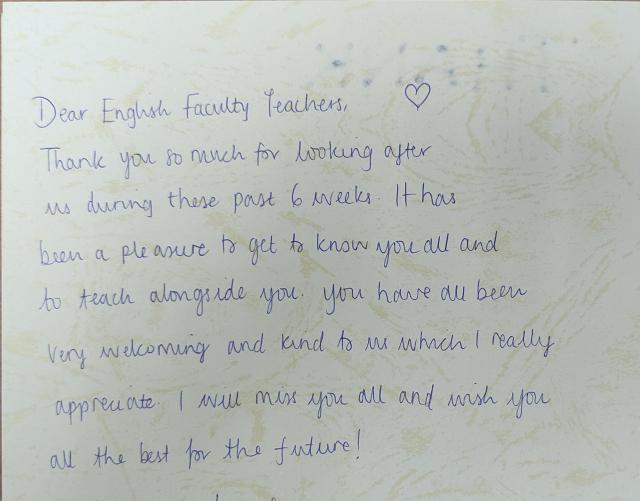 Dear English Faculty Teachers,
Thank you so much for looking after
us during these past 6 weeks. It has
been a pleasure to get to know you all and
to teach alongside you. You have all been
very welcoming and kind to us which I really
appreciate. I will miss you all and wish you
all the best for the future!